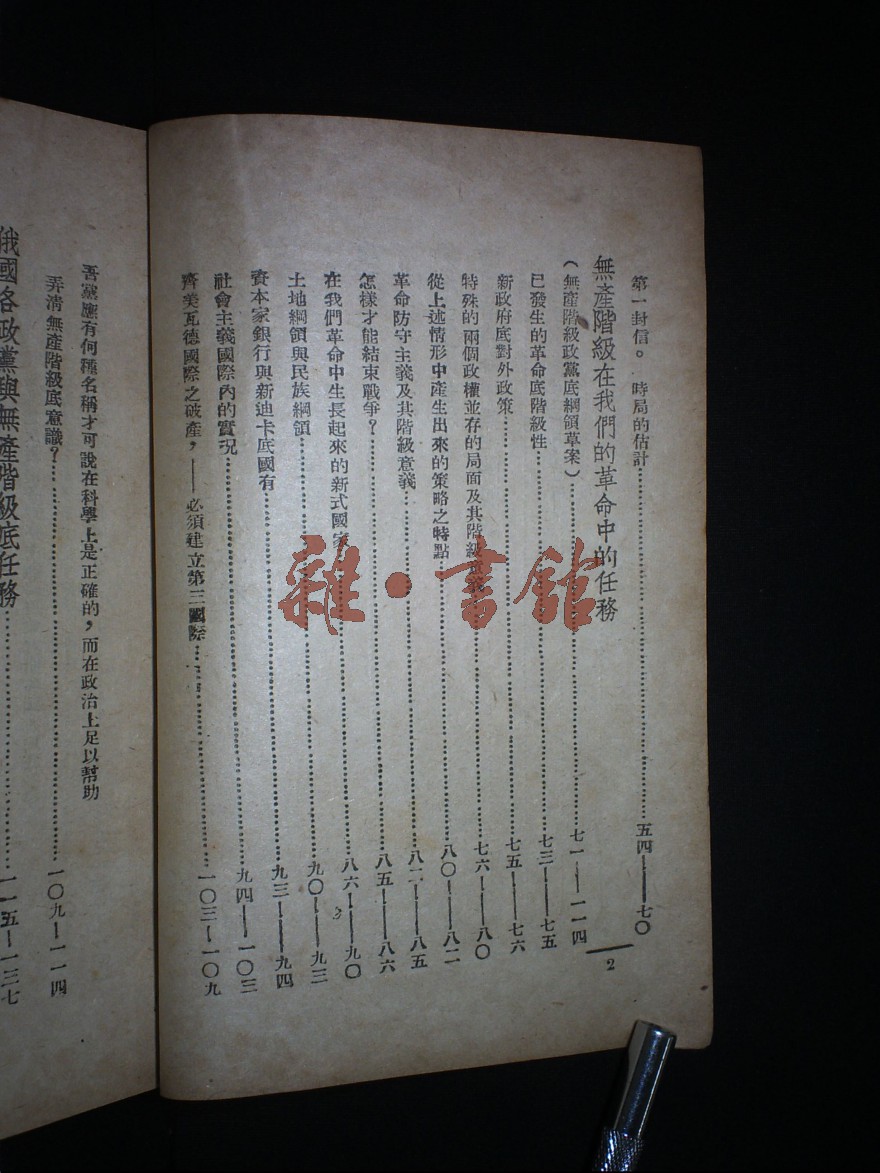 第一封信。 時局的估計……五四——七〇
無產階級在我們的革命中的任務
(無產階級政黨底綱領草案)……七一——一一四
已發生的革命底階級性……七三——七五
新政府底對外政策……七五——七六
特殊的兩個政權並存的局面及其階級意義……七六——八〇
從上述情形中產生出來的策略之特點……八〇——八二
革命防守主義及其階級意義……八二——八五
怎樣才能結束戰爭?……八五——八六
在我們革命中生長起來的新式國家……八六——九〇
土地綱領與民族綱領……九〇——九三
資本家銀行與新迪卡底國有……九三——九四
社會主義國際內的實況……九四——一〇三
齊美瓦德國際之破產,——必須建立第三國際……一〇三—一〇九
2
吾黨應有何種名稱才可說在科學上是正確的,而在政治上足以幫助
弄清無產階級底意識?……一〇九—一一四
俄國各政黨與無產階級底任務……一一五—一三七
雜·書館